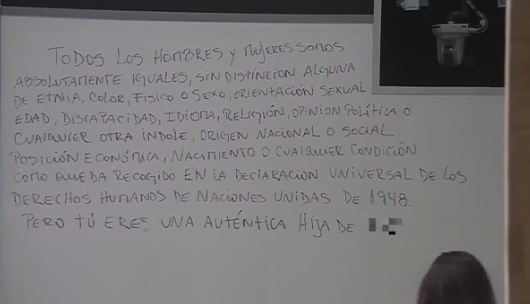 TODOS LOS HOMBRES Y MUJERES SOMOS
ABSOLUTAMENTE IGUALES, SIN DISTINCION ALGUNA
DE ETNIA, COLOR, FISICO O SEXO, ORIENTACIÓN SEXUAL
EDAD, DISCAPACIDAD, IDIOMA, RELIGIÓN, OPINION POLÍTICA O
CUALQUIER OTRA ÍNDOLE, ORIGEN NACIONAL O SOCIAL
POSICIÓN ECONÓMICA, NACIMIENTO O CUALQUIER CONDICIÓN
COMO QUEDA RECOGIDO EN LA DECLARACION UNIVERSAL DE LOS
DERECHOS HUMANOS DE NACIONES UNIDAS DE 1948.
PERO TÚ ERES UNA AUTÉNTICA HIJA DE